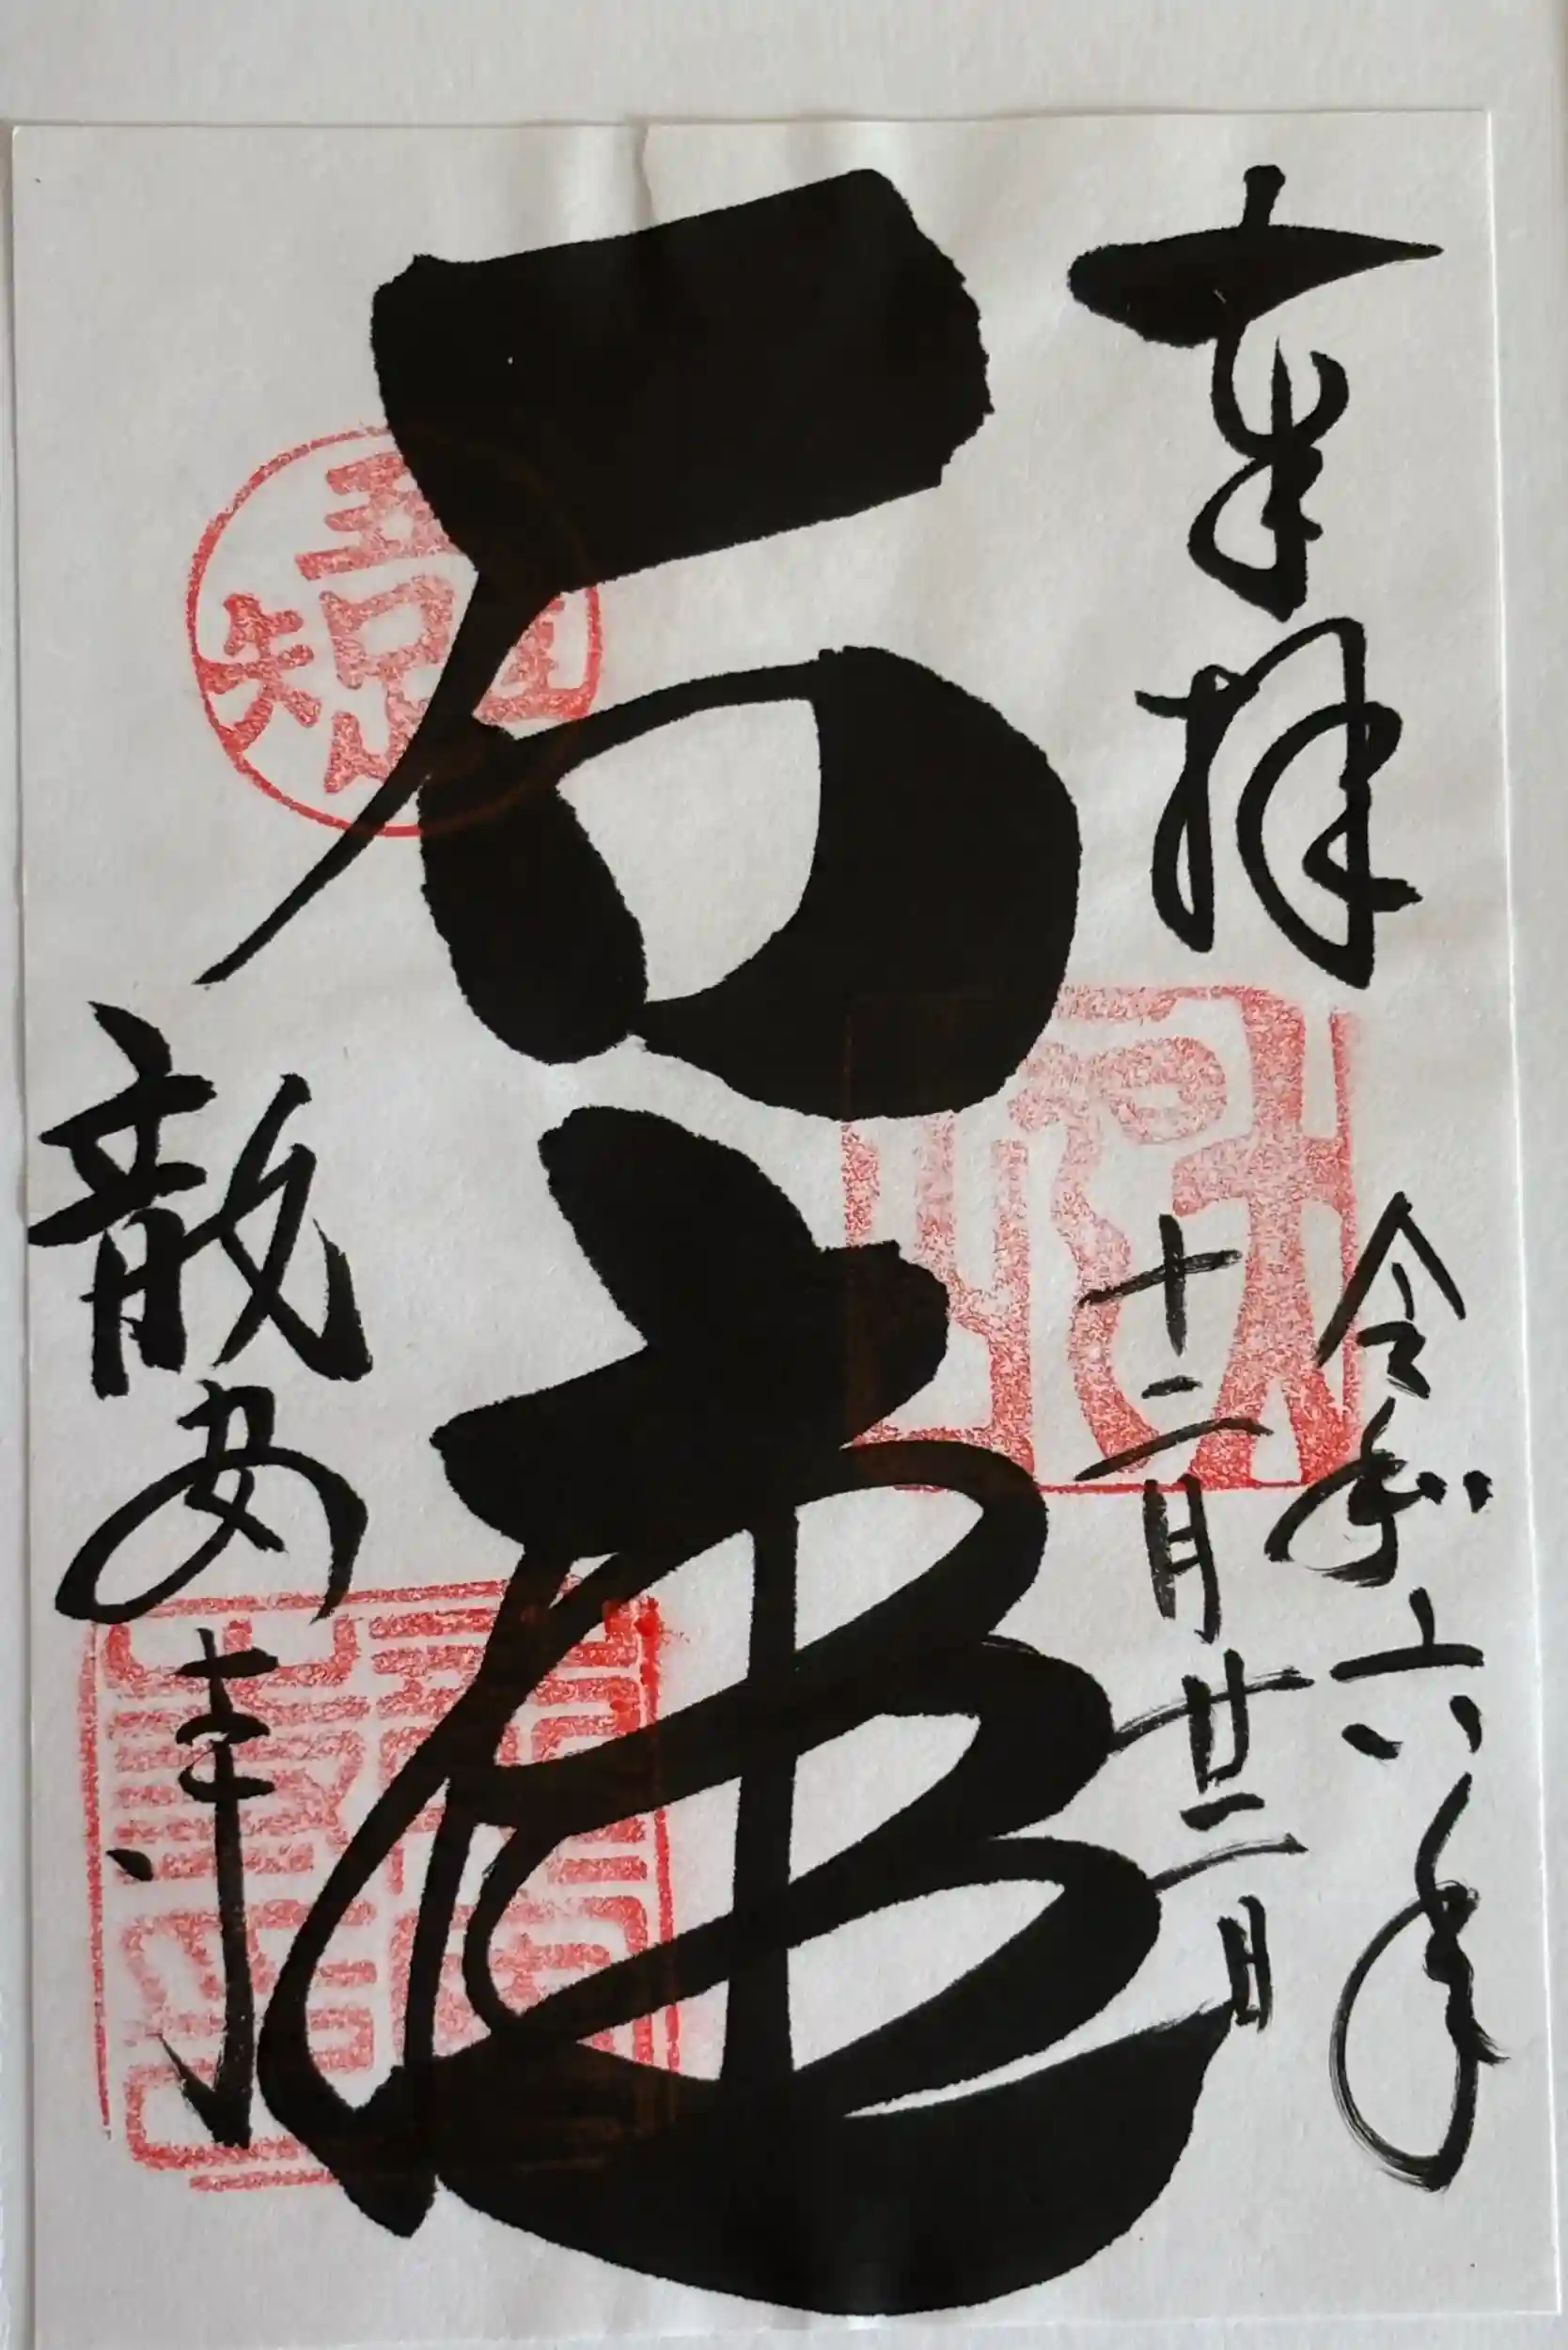 奉拝
令和六年
十二月廿二日
石庭
龍安寺
吾唯足知